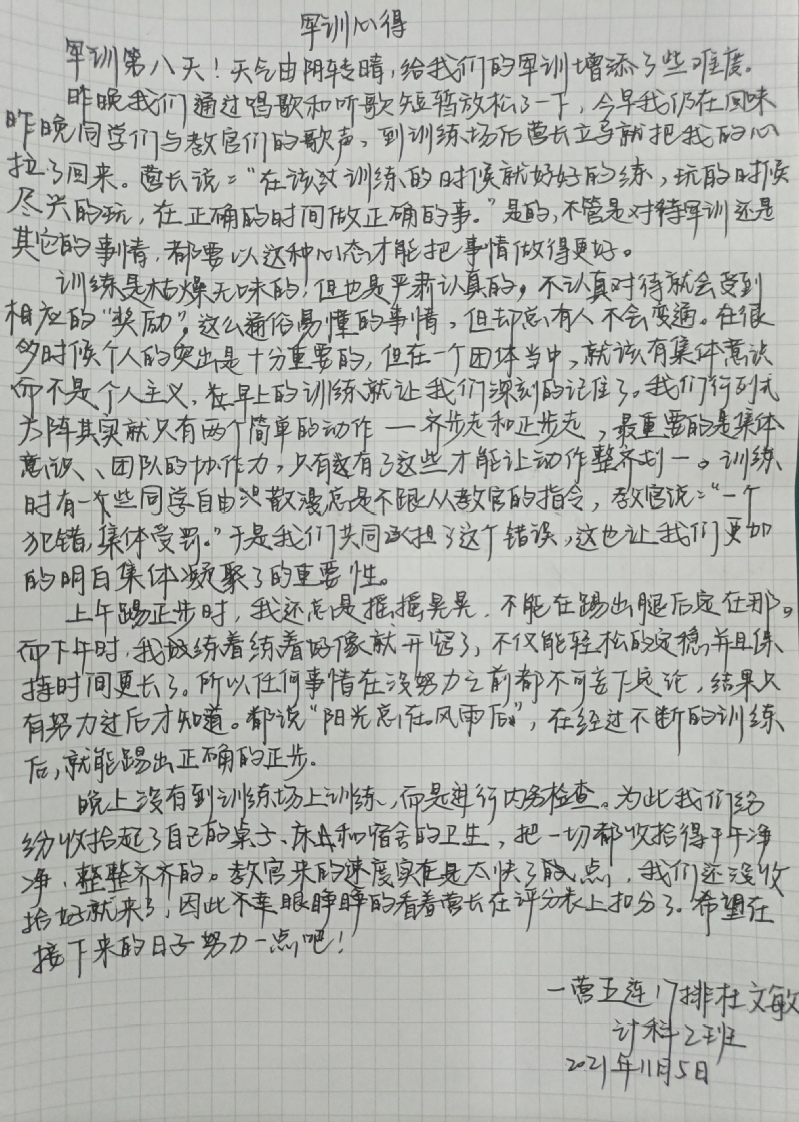 军训心得
军训第八天！天气由阴转晴，给我们的军训增添了些难度。
昨晚我们通过唱歌和听歌短暂放松了一下，今早我仍在回味
昨晚同学们与教官们的歌声，到训练场后营长立马就把我的心
拉了回来。营长说："在该训练的时候就好好的练，玩的时候
尽兴的玩，在正确的时间做正确的事。"是的，不管是对待军训还是
其它的事情，都要以这种心态才能把事情做得更好。
训练是枯燥无味的，但也是严肃认真的，不认真对待就会受到
相应的"奖励"，这么通俗易懂的事情，但却总有人不会变通。在很
多时候个人的突出是十分重要的，但在一个团体当中，就该有集体意识
而不是个人主义，在早上的训练就让我们深刻的记住了。我们行列式
方阵其实就只有两个简单的动作——齐步走和正步走，最重要的是集体
意识、团队的协作力，只有有了这些才能让动作整齐划一。训练
时有一些同学自由散漫总是不跟从教官的指令，教官说："一个
犯错，集体受罚。"于是我们共同承担了这个错误，这也让我们更加
的明白集体凝聚了的重要性。
上午踢正步时，我还总是摇摇晃晃，不能在踢出腿后定在那，
而下午时，我练着练着好像就开窍了，不仅能轻松的定稳，并且保
持时间更长了。所以任何事情在没努力之前都不可妄下定论，结果只
有努力过后才知道。都说"阳光总在风雨后"，在经过不断的训练
后，就能踢出正确的正步。
晚上没有到训练场上训练，而是进行内务检查。为此我们纷
纷收拾起了自己的桌子、床和宿舍的卫生，把一切都收拾得干干净
净、整整齐齐的。教官来的速度实在是太快了的点，我们还没收
拾好就来了，因此不幸眼睁睁的看着营长在评分表上扣分了。希望在
接下来的日子努力一点吧！
一营五连17排杜文敏
计科2班
2021年11月5日